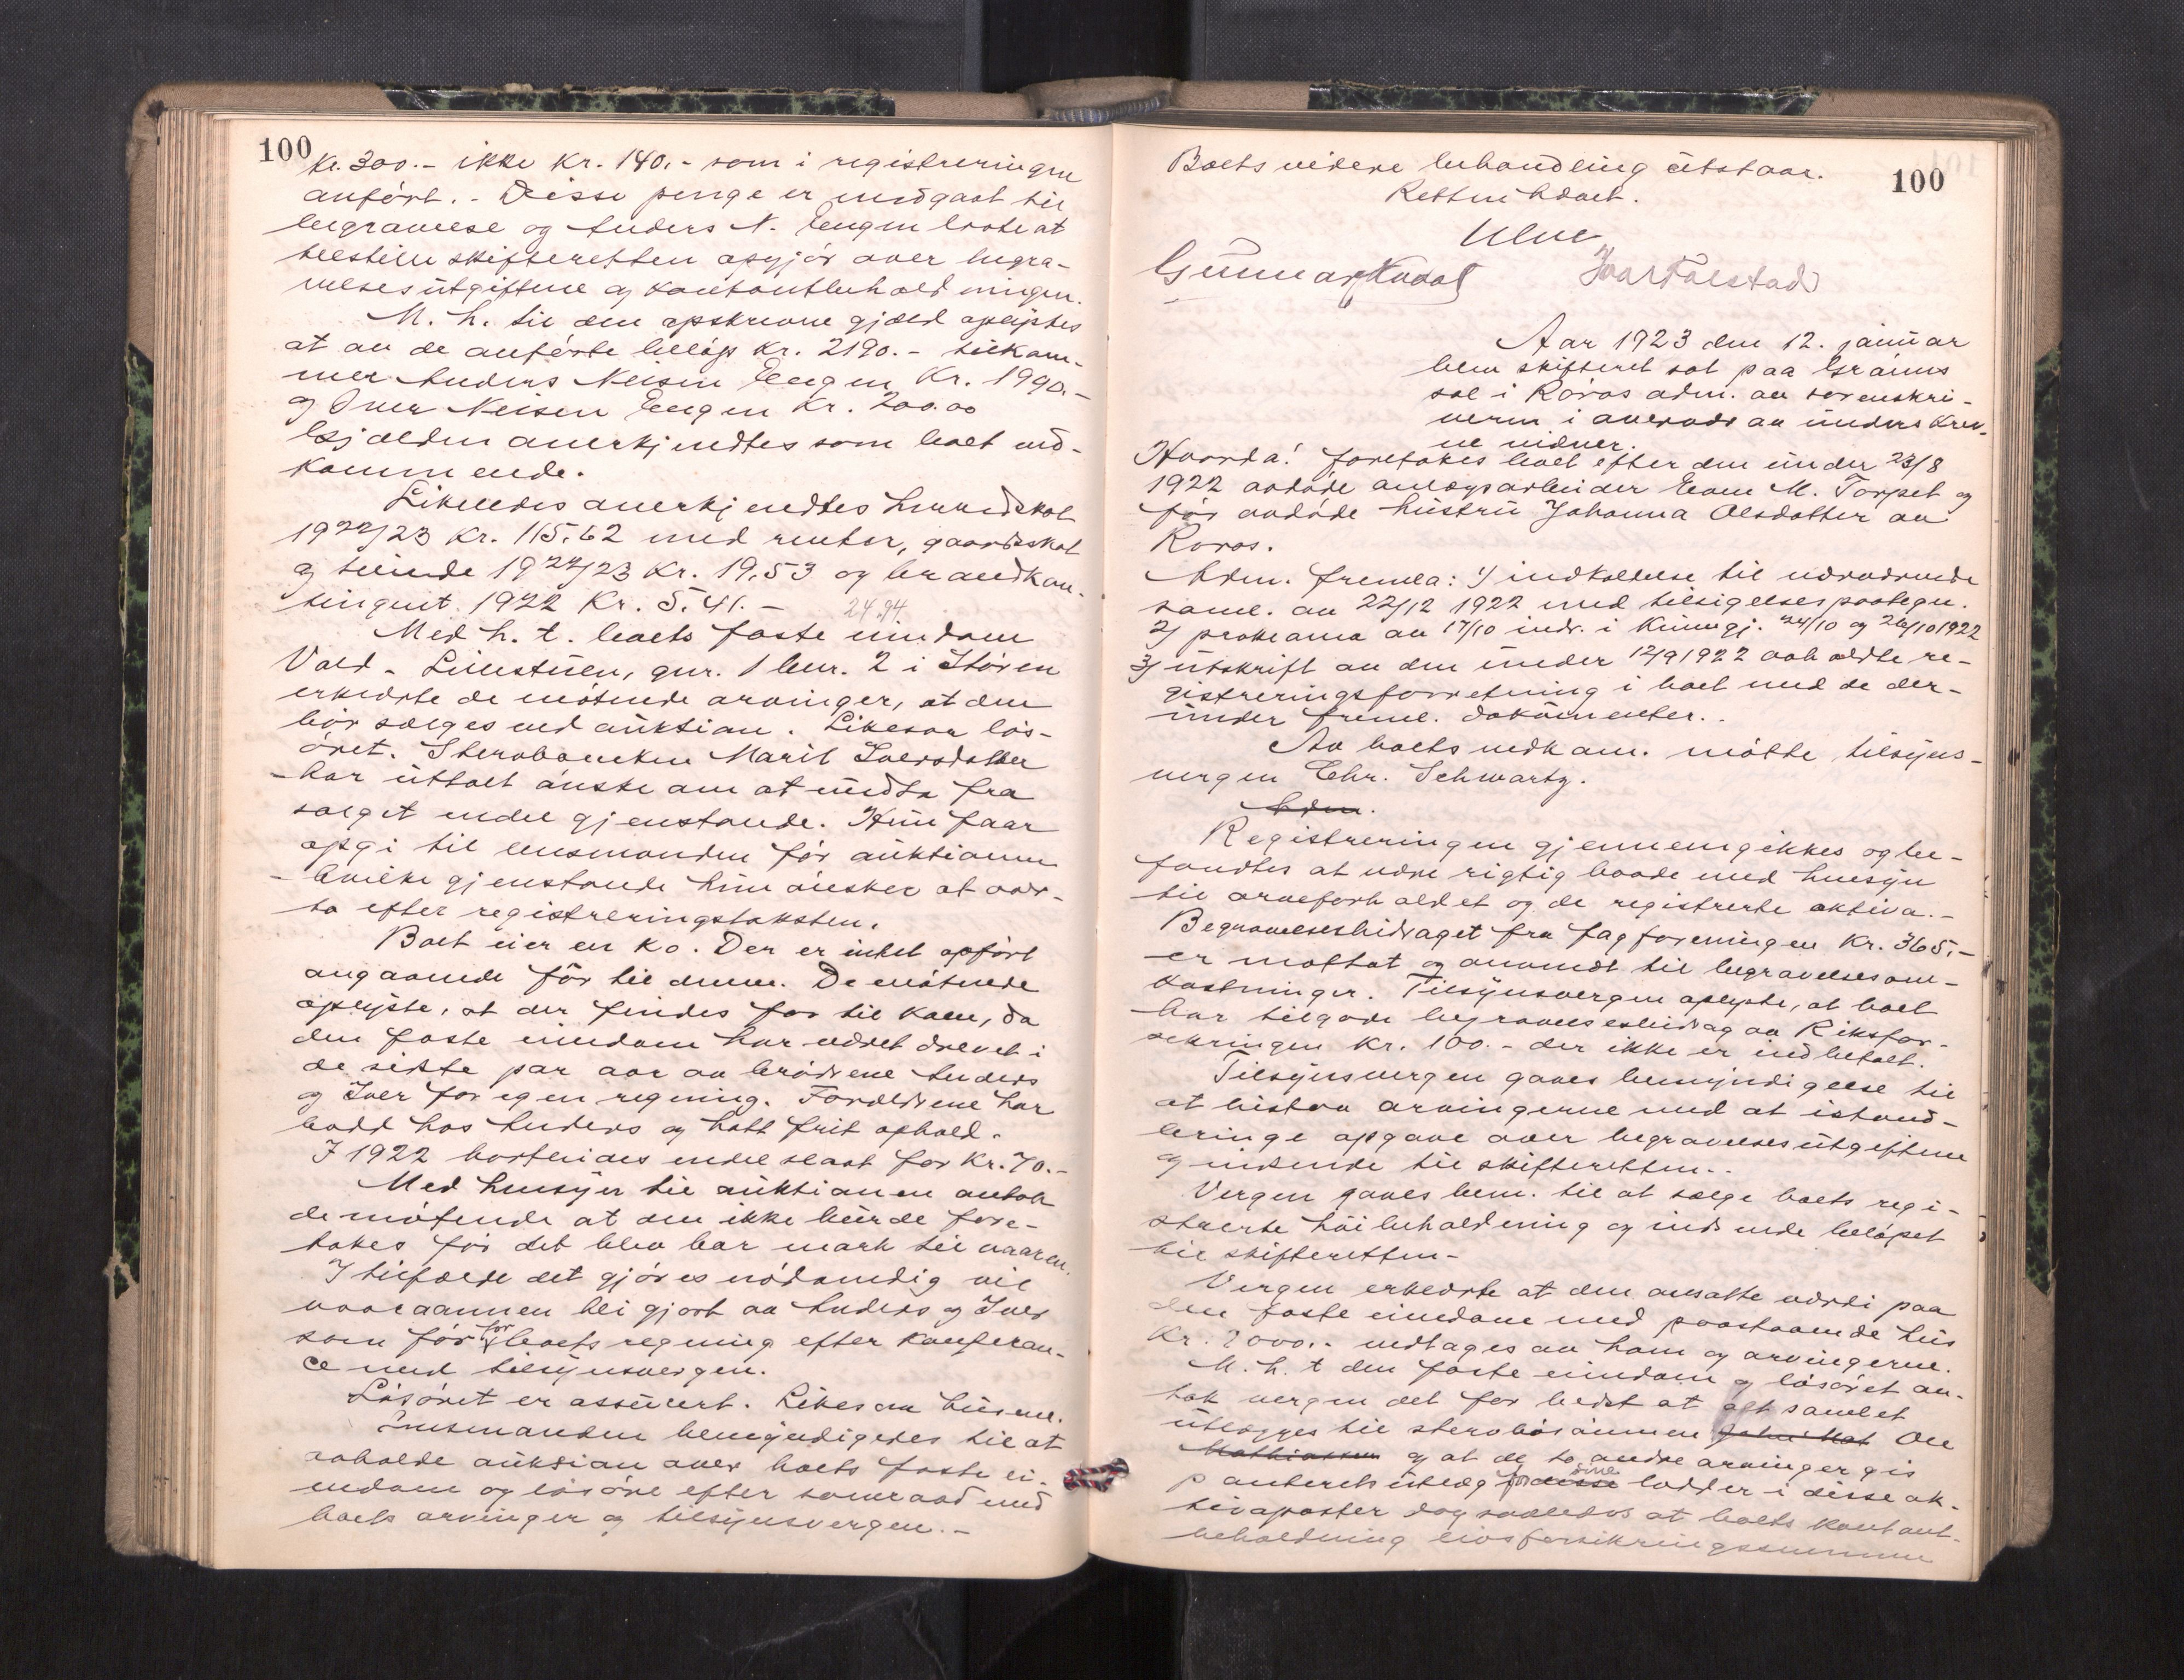 100
Kr. 300.- ikke kr. 140.- som i registreringen
anført. - Disse penge er medgaat til
begravelse og Anders N. Engen lovte at
tilstille skifteretten opgjør over begra-
velsesutgiftene og kontantbeholdningen.
M. h. til den opskrevne gjæld oplystes
at av de anførte beløp kr. 2190.- tilkom-
mer Anders Nilsen Engen kr. 1990.-
og Iver Nilsen Engen kr. 200.00
Gjælden anerkjendtes som boet ved-
kommende.
Likeledes anerkjendtes herredskat
1922/23 kr. 115.62 med renter, gaardskat
og tiende 1922/23 kr. 19.53 og brandkon-
tingent 1922 kr. 5.41.- 24.94.
Med h. t. boets faste eiendom
Vold-Lillestuen, gnr. 1 bnr. 2 i Støren
erklærte de møtende arvinger, at den
bør sælges ved auktion. Likesaa løs-
øret. Stervboenken Marit Iversdatter
har uttalt ønske om at undta fra
salget endel gjenstande. Hun faar
opgi til lensmanden før auktionen
hvilke gjenstande hun ønsker at over-
ta efter registreringstaksten.
Boet eier en ko. Der er intet opført
angaaende fôr til denne. De møtende
oplyste, at der findes for til koen, da
den faste eiendom har været drevet i
de siste par aar av brødrene Anders
og Iver for egen regning. Forældrene har
bodd hos Anders og hatt frit ophold.
I 1922 bortleides endel slaat for kr. 70.-
Med hensyn til auktionen antok
de møtende at den ikke burde fore-
takes før det blev bar mark til vaaren.
I tilfælde det gjøres nødvendig vil
vaaraannen bli gjort av Anders og Iver
som før for boets regning efter konferan-
ce med tilsynsvergen.
Løsøret er assurert. Likesaa husene.
Lensmanden bemyndigedes til at
avholde auktion over boets faste ei-
endom og løsøre efter samraad med
boets arvinger og tilsynsvergen.-
100
Boets videre behandling utstaar.
Retten hævet.
Ulve
Gunnar Kvaal Ivar Tølstad
Aar 1923 den 12. januar
blev skifteret sat paa Gramms
sal i Røros adm. av sorenskri-
veren i overvær av underskrev-
ne vidner.
Hvorda! foretokes boet efter den under 23/8
1922 avdøde anlægsarbeider Even M. Torpet og
før avdøde hustru Johanna Olsdatter av
Røros.
Adm. fremla: 1) indkaldelse til nærværende
saml. av 22/12 1922 med tilsigelsespaategn.
2) proklama av 17/10 indr. i Kunngj. 24/10 og 26/10 1922
3) utskrift av den under 12/9 1922 avholdte re-
gistreringsforretning i boet med de der-
under freml. dokumenter..
Av boets vedkom. møtte tilsyns-
vergen Chr. Schwartz.
Adm.
Registreringen gjennemgikkes og be-
fandtes at være rigtig baade med hensyn
til arveforholdet og de registrerte aktiva.-
Begravelsesbidraget fra fagforeningen kr. 365,-
er mottat og anvendt til begravelsesom-
kostninger. Tilsynsvergen oplyste, at boet
har tilgode begravelsesbidrag av Riksfor-
sikringen kr. 100.- der ikke er indbetalt.
Tilsynsvergen gaves bemyndigelse til
at bistaa arvingerne med at istand-
bringe opgave over begravelsesutgiftene
og indsende til skifteretten..
Vergen gaves bem. til at sælge boets regi-
strerte høibeholdning og indsende beløpet
til skifteretten-
Vergen erklærte at den ansatte værdi paa
den faste eiendom med paastaaende hus
kr. 2000.- vedtages av ham og arvingerne.
M. h. t den faste eiendom og løsøret an-
tok vergen det for bedst at alt samlet
utlægges til sterbosønnen Ole
Mathiassen og at de to andre arvinger gis
panterets utlæg for disse sine lodder i disse ak-
tivaposter dog saaledes at boets kontant-
beholdning livsforsikringssummen